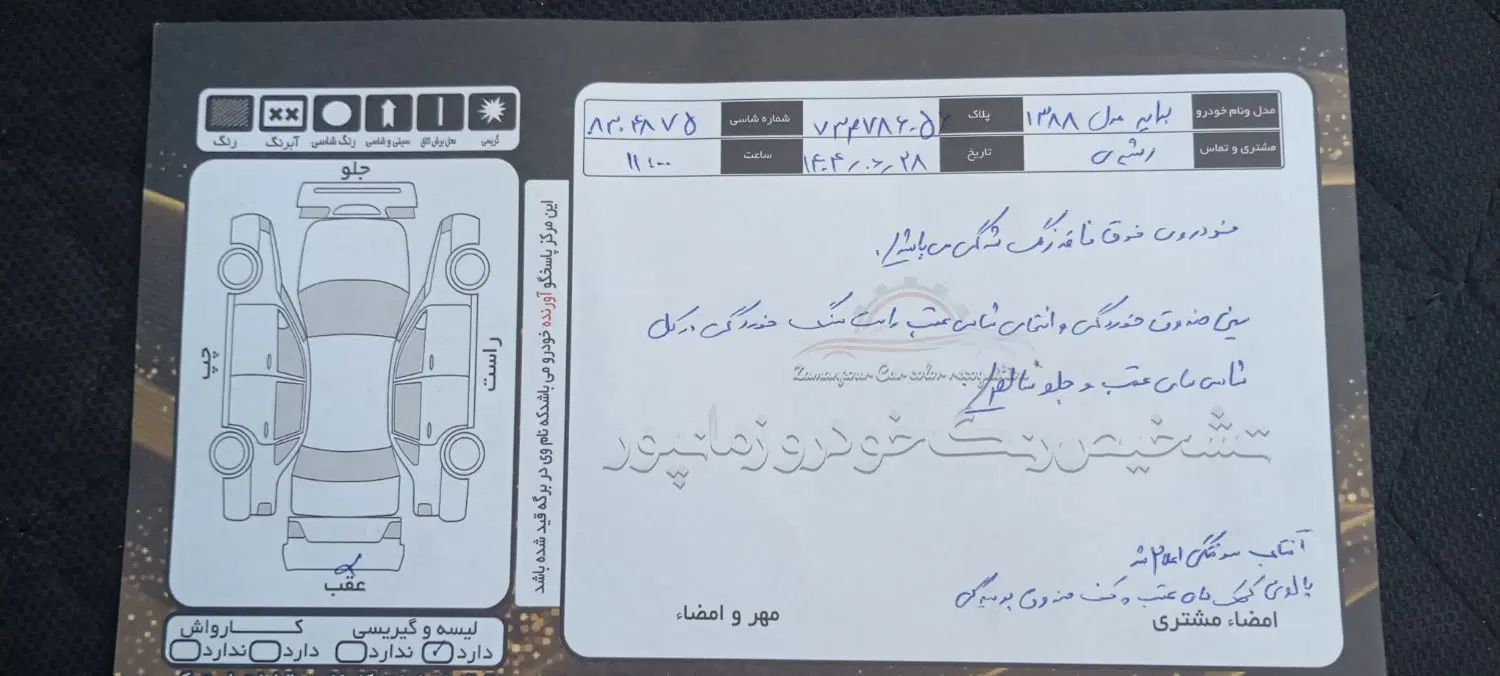 مدل ونام خودرو
پراید مدل ۱۳۸۸
پلاک
شماره شاسی
۸۳۰۴۸۷۵
مشتری و تماس
تاریخ
۱۴۰۴/۰۶/۲۸
ساعت
۱۱:۰۰
خودروی فوق فاقد رنگ شدگی می باشد.
سینی صندوق خوردگی و انتهای شاسی عقب راست سنگ خوردگی در کل
شاسی های عقب و جلو سالم
Zamanpour Car color recognition
تشخیص رنگ خودرو زمانپور
آفتاب سوختگی اعلام شد
پالونی کمک های عقب و کف صندوق پوسیدگی
امضاء مشتری
مهر و امضاء
این مرکز پاسخگو آورنده خودرو می باشدکه نام وی در برگه قید شده باشد
گریسی
محل برش اتاق
سینی و شاسی
رنگ شاسی
آبرنگ
رنگ
جلو
چپ
راست
عقب
لیسه و گیریسی
کارواش
دارد ✓ ندارد
دارد ندارد